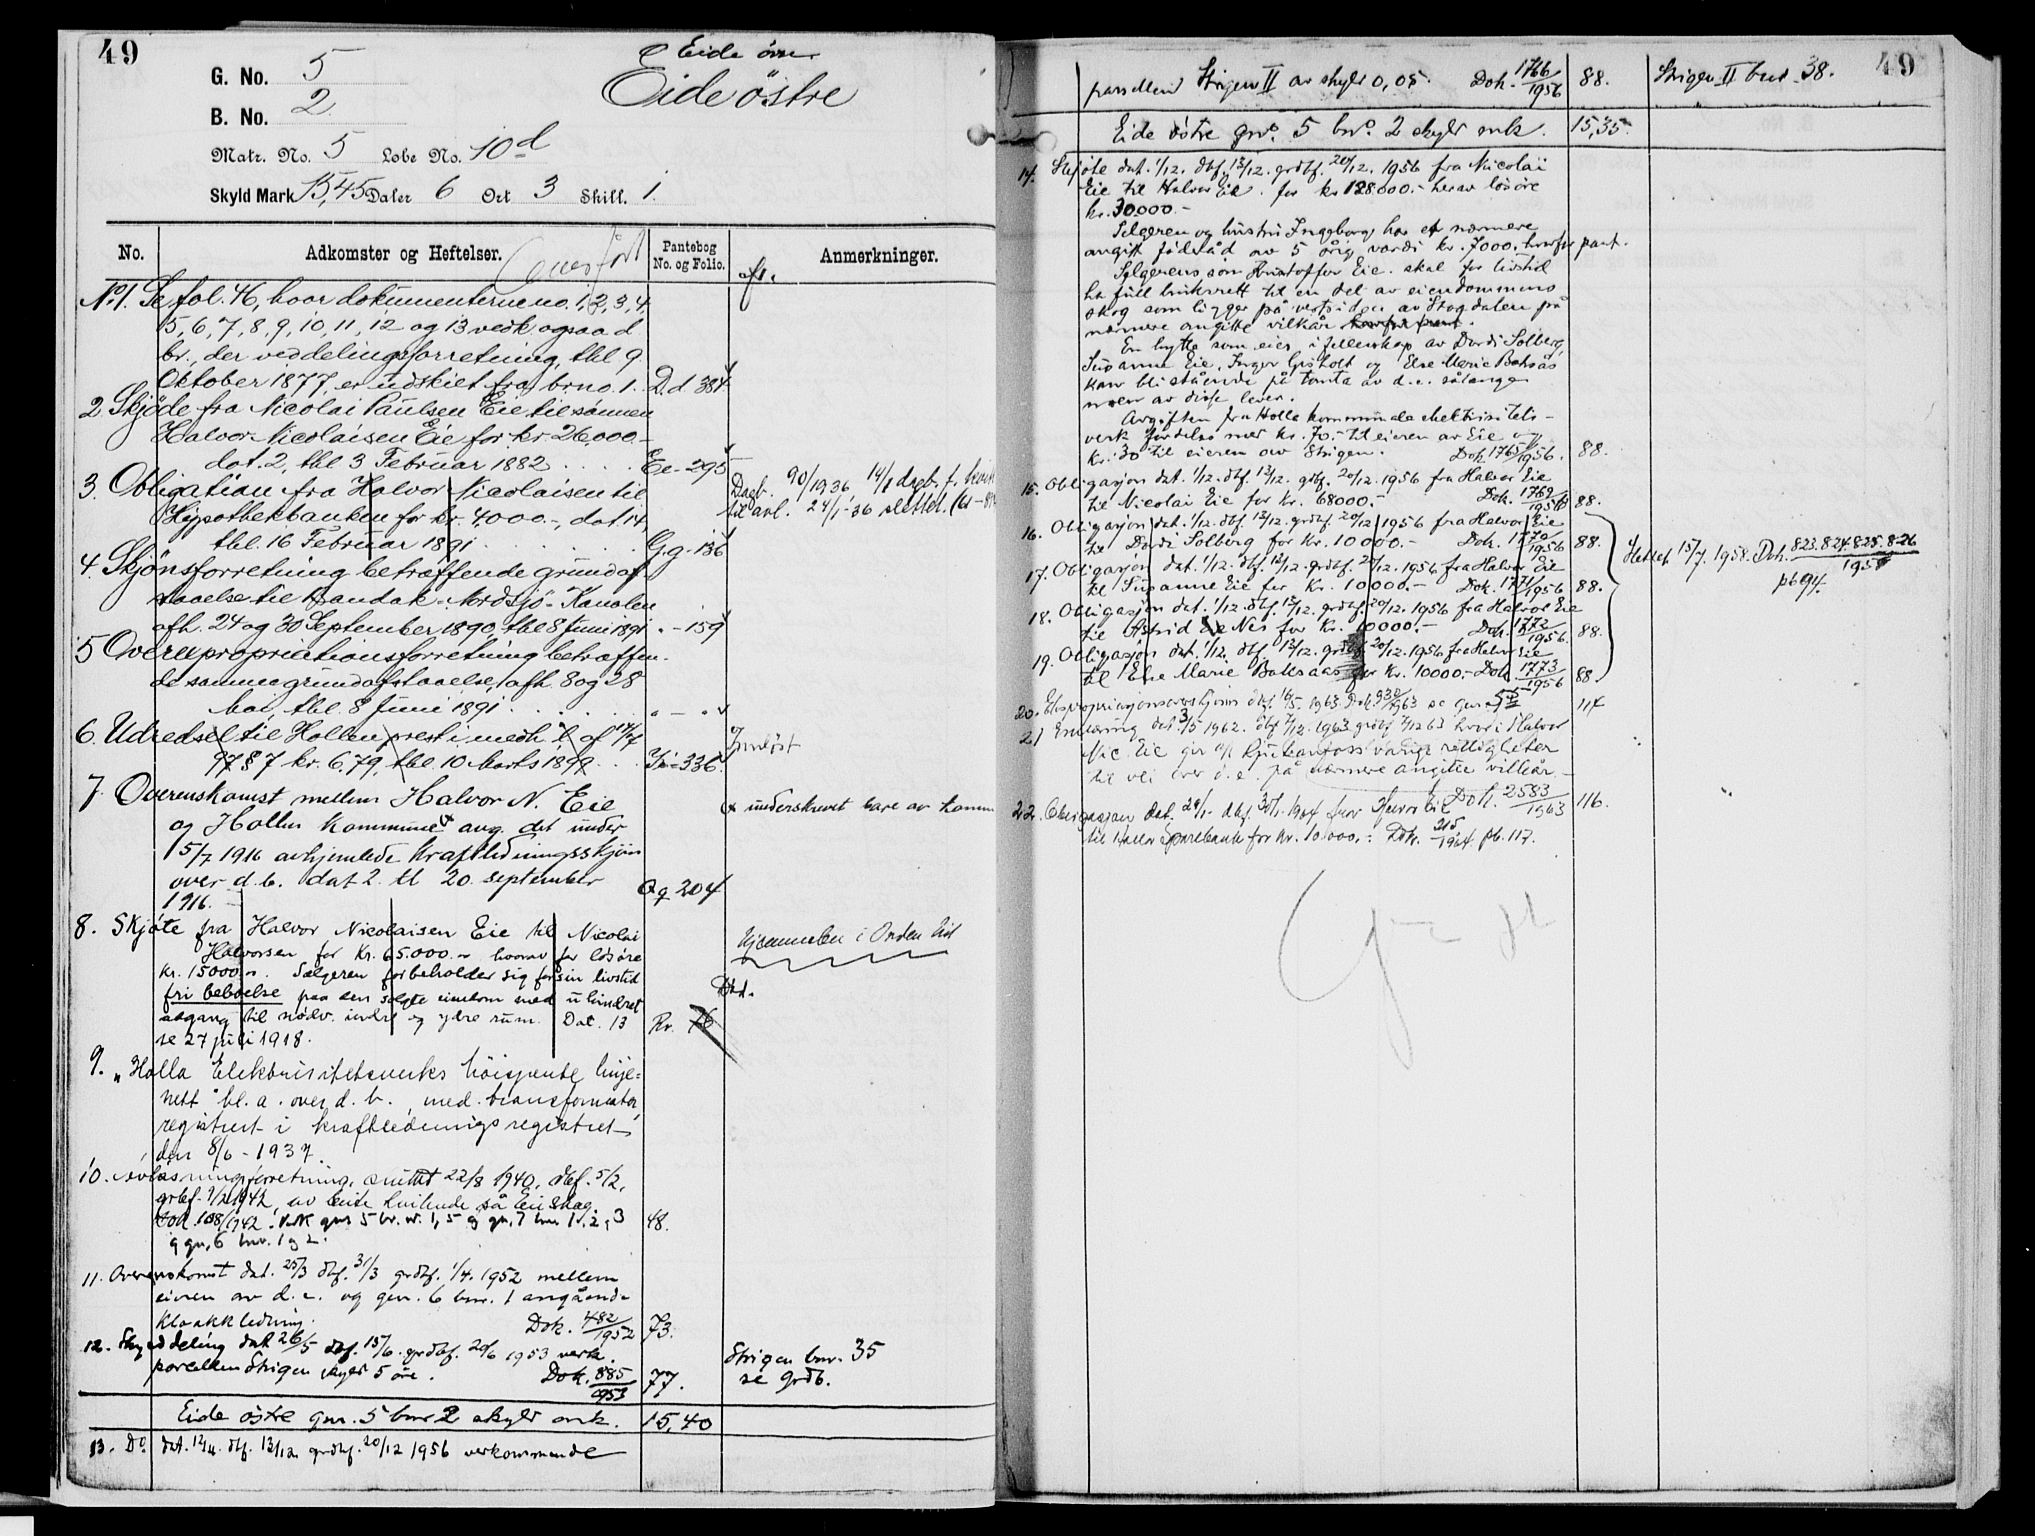 49
Eide øvre
G. No. 5
Eide östre
B. No. 2
Matr. No. 5 Løbe No. 10d
Skyld Mark 15,45 Daler 6 Ort 3 Skill. 1.
No. Adkomster og Heftelser. Pantebog No. og Folio. Anmerkninger.
overført afl.
No 1. Se fol. 46, hvor dokumenterne no. 1, 2, 3, 4,
5, 6, 7, 8, 9, 10, 11, 12 og 13 vedk. ogsaa d.
br., der ved delingsforretning, thl 9.
Oktober 1877, er udskilt fra brno. 1. D.d 384
2. Skjøde fra Nicolai Paulsen Eie til sønnen
Halvor Nicolaisen Eie for kr 26,000.-
dat. 2, thl 3 Februar 1882 . . . . Ee - 295
3. Obligation fra Halvor Nicolaisen til Dagb. 90/1936 14/1
Hypothekbanken for kr 4000.-, dat. 14, til avl. 24/1-36 slettet.
thl. 16 Februar 1891 . . . . G.g - 136
4. Skjønsforretning betræffende grundaf-
staaelse til Bandak-Nordsjø-Kanalen
afh. 24 og 30 September 1890, thl 8 Juni 1891 " - 159
5 Overexpropriationsforretning betræffen-
de samme grundafstaaelse, afh. 8 og 28
Mai, thl. 8 Juni 1891 . . . . " - "
6. Udredsel til Hollen prest i medh. l. af 14/7
97 § 7 kr. 6,79, thl. 10 Marts 1899 . . . - 336. Innløst
7. Overenskomst mellem Halvor N. Eie x underskrevet bare av komm
og Hollen Kommune x ang. det under
15/7 1916 avhjemlede Kraftledningsskjøn
over d.b. dat 2. tl 20. september Qq 204
1916.
8. Skjøte fra Halvor Nicolaisen Eie til Nicolai Hjemmelen i Orden
Halvorsen for Kr. 65.000.- hvorav for løsøre
kr. 15000.-. Sælgeren forbeholder sig for sin livstid
fri beboelse paa den solgte eiendom med uhindret
adgang til nødv. indre og ydre rum. Dat. 13 Rr. 76
se 27 juli 1918.
9. „Holla Elektrisitetsverks höispente linje-
nett" bl. a. over d. b., med transformator
registrert i kraftledningsregistret
den 8/6 - 1937.
10. Avløsningsforretning, sluttet 22/8 1940, dbf. 5/2,
grbf. 9/2 1942, av beite hvilende på Eieskog.
Dok. 108/1942. Vedk gnr 5 br. nr. 1, 5 og gn. 7 bnr 1, 2, 3 48.
og gn. 6 bnr. 1 og 2.
11. Overenskomst dat. 25/3 dbf. 31/3 grdbf. 1/4. 1952 mellem
eieren av d. e. og gnr. 6 bnr. 1 angående
kloakkledning. Dok. 482/1952 73.
12. Skylddeling dat 26/5 dbf. 15/6. grdbf. 20/6 1953 vedk. Strigen bnr. 35
parcellen Strigen skyld 5 øre. Dok. 885/1953 77. se grdb.
Eide østre gnr. 5 bnr 2 skyld mk. 15,40
13. Do dat. 12/11. dbf. 12/12. grdbf. 20/12 1956 vedkommende
49
parsellen Strigen II av skyld 0,05. Dok. 1766/1956 88. Strigen II bnr. 38.
Eide østre gno. 5 bno. 2 skyld mk. 15,35.
14. Skjøte dat. 1/12. dbf. 12/12. grdbf. 20/12. 1956 fra Nicolai
Eie til Halvor Eie. for kr 128000.- herav løsøre
kr. 30000.-
Selgeren og hustru Ingeborg har et nærmere
angitt føderåd av 5 årig verdi kr. 7000. hvorfor pant.
Selgerens søn Kristoffer Eie. skal for livstid
ha full bruksrett til en del av eiendommens
skog som ligger på vestsiden av Stogdalen på
nærmere angitte vilkår hvorfor pant.
En hytte som eies i fellenskap av Dordi Solberg,
Susanne Eie, Inger Grisholt og Else Marie Boksås
kan bli stående på tomta av d.e. sålenge
noen av disse lever.
Avgiften fra Holla kommunale elektrisitets-
verk fordeles med kr. 70.- til eieren av Eie og
kr. 30 til eieren av Strigen. Dok 1765/1956. 88.
15. Obligasjon dat. 1/12. dbf 12/12. grdbf. 20/12. 1956 fra Halvor Eie
til Nicolai Eie for Kr. 68000.- Dok. 1769/1956 88.
16. Obligasjon dat. 1/12. dbf. 12/12. grdbf. 20/12 1956 fra Halvor Eie
til Dordi Solberg for Kr. 10000.- Dok. 1770/1956 88. Slettet 15/7. 1958. Dok. 823.824.825.826/1958
17. Obligasjon dat. 1/12. dbf. 12/12. grdbf. 20/12. 1956 fra Halvor Eie pb 94.
til Susanne Eie for Kr. 10000.- Dok. 1771/1956 88.
18. Obligasjon dat. 1/12. dbf. 12/12. grdbf. 20/12. 1956 fra Halvor Eie
til Astrid Nes for Kr. 10000.- Dok. 1772/1956. 88.
19. Obligasjon dat. 1/12. dbf. 12/12. grdbf. 20/12. 1956 fra Halvor Eie
til Else Marie Boksaas for Kr. 10000.- Dok. 1773/1956 88.
20. Ekspropriasjonsoverskjønn 1963. Dok 930/1963 se gnr 5 114
21 Erklæring dat 3/5 1962. dbf 7/12. 1963 grdbf 7/12 63 hvori Halvor
Nic. Eie gir rettigheter
til vei over d.e. på nærmere angitte vilkår.-
Dok. 2583/1963 116.
22. Obligasjon dat. 29/1. dbf. 30/1. 1964 fra Halvor Eie
til Holla Sparebank for kr. 10.000.-. Dok. 215/1964 pb. 117.